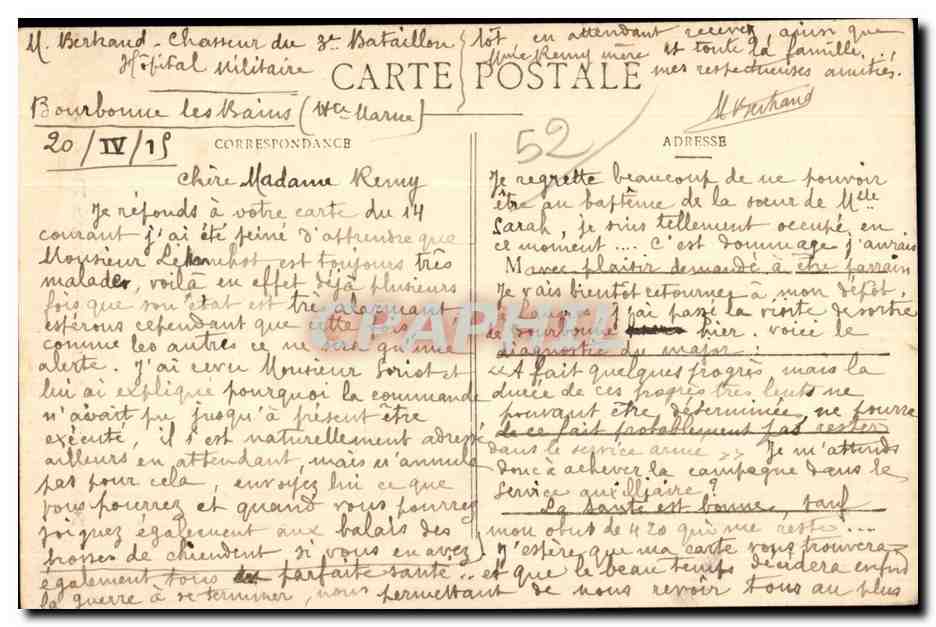 M. Bertrand - Chasseur du 3e Bataillon
Hôpital Militaire
Bourbonne les Bains (Hte Marne)
20/IV/15
CARTE POSTALE
CORRESPONDANCE
Chère Madame Remy
Je réponds à votre carte du 14
courant j'ai été peiné d'apprendre que
Monsieur est toujours très
malade, voilà en effet déjà plusieurs
fois que son état est très alarmant
espérons cependant que cette fois
comme les autres ce ne sera qu'une
alerte. J'ai reçu Monsieur Soriot et
lui ai expliqué pourquoi la commande
n'avait pu jusqu'à présent être
exécuté, il s'est naturellement adressé
ailleurs en attendant, mais n'annule
pas pour cela, envoyez lui ce que
vous pourrez et quand vous pourrez
joignez également aux balais des
brosses de chiendent si vous en avez
52
ADRESSE
Je regrette beaucoup de ne pouvoir
être au baptême de la soeur de Mlle
Sarah, je suis tellement occupé en
ce moment .... C'est dommage j'aurais
avec plaisir demandé à être parrain
Je vais bientôt retourner à mon dépôt,
à Langres j'ai passé la visite de sortie
de Bourbonne hier. voici le
diagnostic du major :
« A fait quelques progrès mais la
durée de ces progrès très lents ne
pouvant être déterminée, ne pourra
de ce fait probablement pas rester
dans le service armé » Je m'attends
donc à achever la campagne dans le
Service auxilliaire ?
La santé est bonne, sauf
mon obus de 420 qui me reste ....
J'espère que ma carte vous trouvera
également tous en parfaite santé .. et que le beau temps décidera enfin
la guerre à se terminer, nous permettant de nous revoir tous au plus
tôt en attendant recevez, ainsi que
Mme Remy mère et toute la famille,
mes respectueuses amitiés.
M Bertrand
CPAPHIL